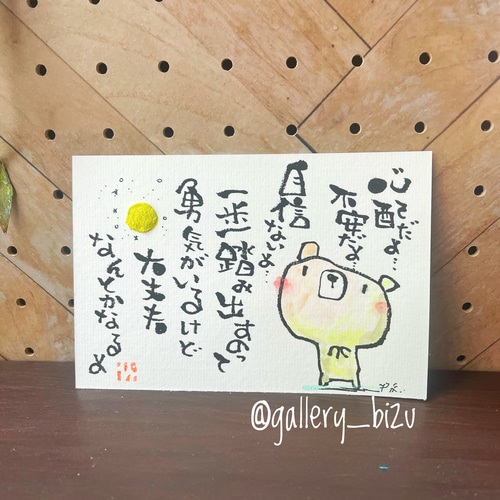 心配だよ…
不安だよ…
自信ないよ…
一歩踏み出すのって
勇気がいるけど
大丈夫
なんとかなるよ
@gallery_bizu